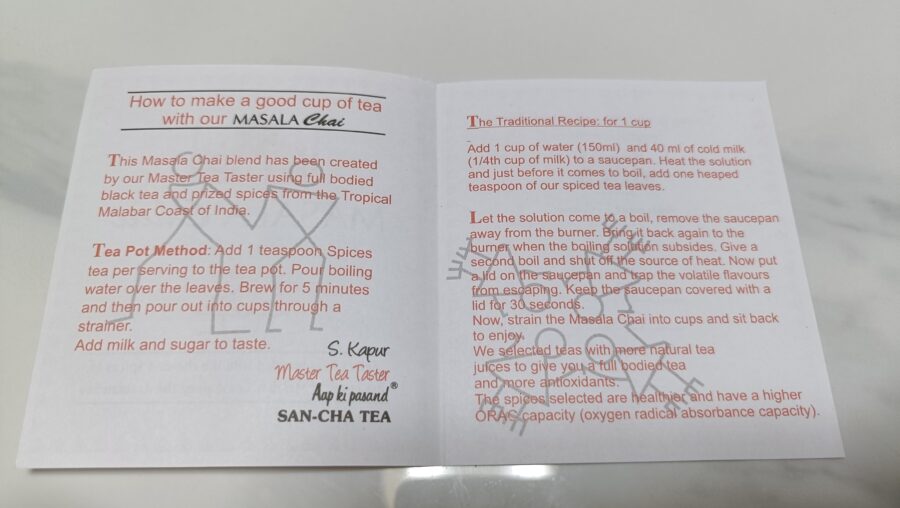 How to make a good cup of tea
with our MASALA Chai
This Masala Chai blend has been created
by our Master Tea Taster using full bodied
black tea and prized spices from the Tropical
Malabar Coast of India.
Tea Pot Method: Add 1 teaspoon Spices
tea per serving to the tea pot. Pour boiling
water over the leaves. Brew for 5 minutes
and then pour out into cups through a
strainer.
Add milk and sugar to taste.
S. Kapur
Master Tea Taster
Aap ki pasand®
SAN-CHA TEA
The Traditional Recipe: for 1 cup
Add 1 cup of water (150ml) and 40 ml of cold milk
(1/4th cup of milk) to a saucepan. Heat the solution
and just before it comes to boil, add one heaped
teaspoon of our spiced tea leaves.
Let the solution come to a boil, remove the saucepan
away from the burner. Bring it back again to the
burner when the boiling solution subsides. Give a
second boil and shut off the source of heat. Now put
a lid on the saucepan and trap the volatile flavours
from escaping. Keep the saucepan covered with a
lid for 30 seconds.
Now, strain the Masala Chai into cups and sit back
to enjoy.
We selected teas with more natural tea
juices to give you a full bodied tea
and more antioxidants.
The spices selected are healthier and have a higher
ORAC capacity (oxygen radical absorbance capacity).